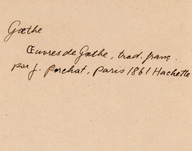 Gœthe
Œuvres de Gœthe, trad. franç.
par J. Porchat, Paris 1861 Hachette